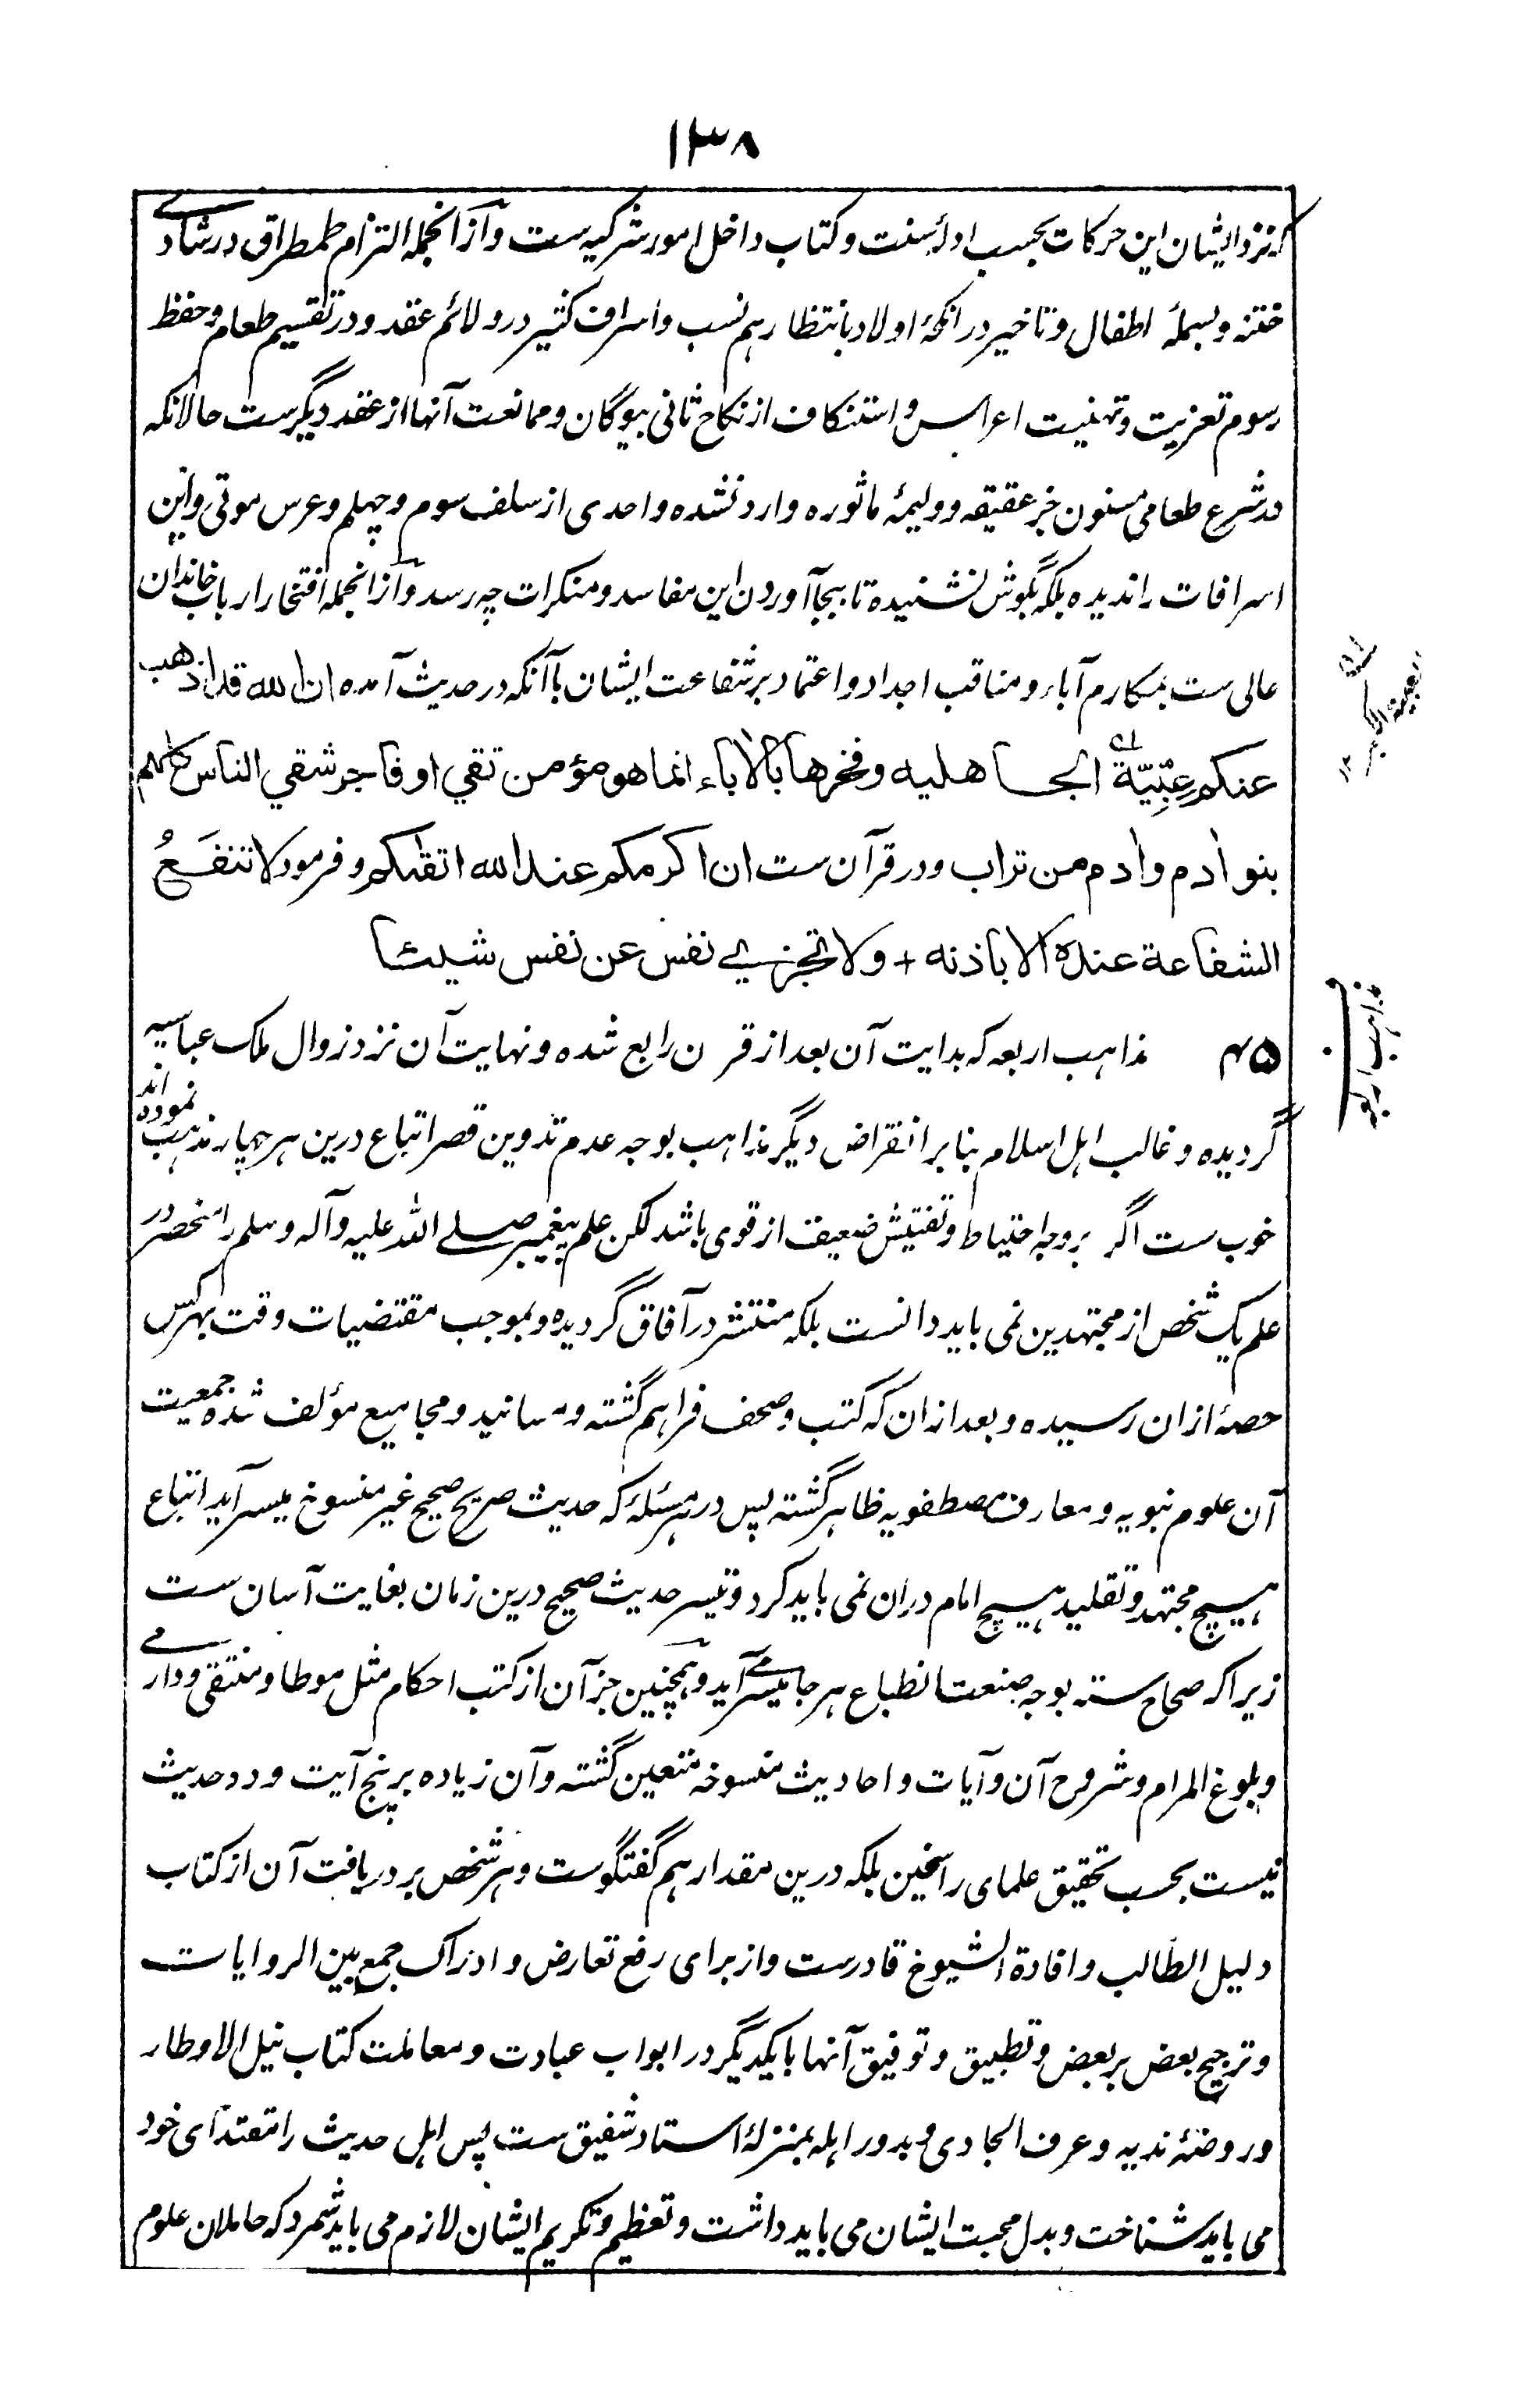 ۱۳۸
که نزد ایشان این حرکات بحسب ادلهٔ سنت و کتاب داخل امور شرکیه ست و ازانجمله التزام طمطراق در شادی
ختنه و بسملهٔ اطفال و تاخیر در انکحهٔ اولاد بانتظار هم نسب و اسراف کثیر در ولائم عقد و در تقسیم طعام و حفظ
رسوم تعزیت و تهنیت اعراس و استنکاف از نکاح ثانی بیوگان و ممانعت آنها از عقد دیگرست حالانکه
در شرع طعامی مسنون جز عقیقه و ولیمهٔ ماثوره وارد نشده و احدی از سلف سوم و چهلم و عرس موتی و این
اسرافات را ندیده بلکه بگوش نشنیده تا ببجا آوردن این مفاسد و منکرات چه رسد و ازانجمله افتخار ارباب خاندان
عالی ست بمکارم آباء و مناقب اجداد و اعتماد بر شفاعت ایشان با آنکه در حدیث آمده ان الله قد اذهب
عنکم عِبِّیَّة الجاهلیه و فخرها بالاٰباء انما هو مؤمن تقي او فاجر شقي الناس کلهم
بنو اٰدم واٰدم من تراب و در قرآن ست ان اکرمکم عند الله اتقٰکم و فرمود لا تنفَعُ
الشفاعة عنده الا باذنه + ولا تجزی نفس عن نفس شیئا
۴۵ مذاهب اربعه که بدایت آن بعد از قرن رابع شده و نهایت آن نزد زوال ملک عباسیه
گردیده و غالب اهل اسلام بنا بر انقراض دیگر مذاهب بوجه عدم تدوین قصر اتباع درین هر چهار مذهب نموده اند
خوب ست اگر بر وجه احتیاط و تفتیش ضعیف از قوی باشد لکن علم پیغمبر صلے الله علیه و آله و سلم را منحصر در
علم یک شخص از مجتهدین نمی باید دانست بلکه منتشر در آفاق گردیده و بموجب مقتضیات وقت بهر کس
حصهٔ ازان رسیده و بعد ازان که کتب و صحف فراهم گشته و مسانید و مجامیع مؤلف شده جمعیت
آن علوم نبویه و معارف مصطفویه ظاهر گشته پس در هر مسئله که حدیث صریح صحیح غیر منسوخ میسر آید اتباع
هیچ مجتهد و تقلید هیچ امام دران نمی باید کرد و تیسر حدیث صحیح درین زمان بغایت آسان ست
زیرا که صحاح سته بوجه صنعت انطباع هر جا میسر می آید و همچنین جز آن از کتب احکام مثل موطا و منتقی و دارمی
و بلوغ المرام و شروح آن و آیات و احادیث منسوخه متعین گشته و آن زیاده بر پنج آیت و ده حدیث
نیست بحسب تحقیق علمای راسخین بلکه درین مقدار هم گفتگوست و هر شخص بر دریافت آن از کتاب
دلیل الطالب و افادة الشیوخ قادرست و از برای رفع تعارض و ادراک جمع بین الروایات
و ترجیح بعض بر بعض و تطبیق و توفیق آنها با یکدیگر در ابواب عبادت و معاملت کتاب نیل الاوطار
و روضهٔ ندیه و عرف الجادی و بدور اهله بمنزلهٔ استاد شفیق ست پس اهل حدیث را مقتدای خود
می باید شناخت و بدل محبت ایشان می باید داشت و تعظیم و تکریم ایشان لازم می باید شمرد که حاملان علوم
العبیة الکبر ۱۲
مذاهب اربعه